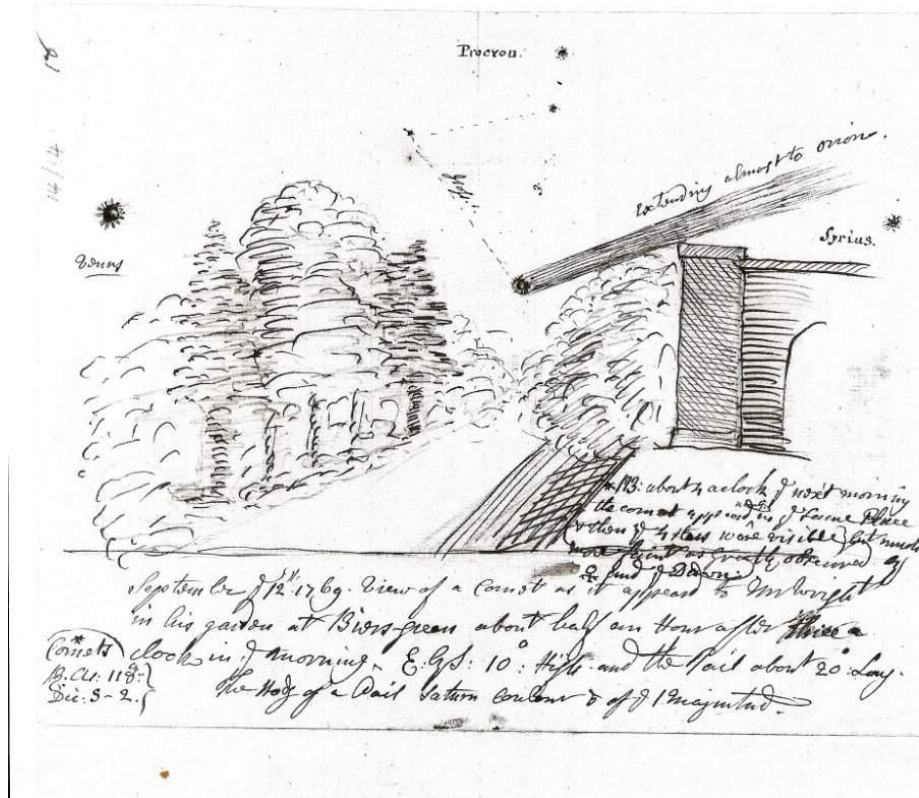 14/14
Procyon.
Extending almost to orion.
Syrius.
Venus
NB: about 4 aclock ye next morning
the comet appeard in ye same Place
& then ye stars were visible but much
more faint as greatly obscured by
ye end of Dawn.
September ye 12th 1769. View of a Comet as it appeard to Mr Wright
in his garden at Biersgreen about half an Hour after three a
clock in ye morning. E. 10°: High and the Tail about 20° Long.
The Body of a Dail Saturn coulour & of ye 1 magnitud.
Comets
R. As: 118°:
Dic: 3-2.